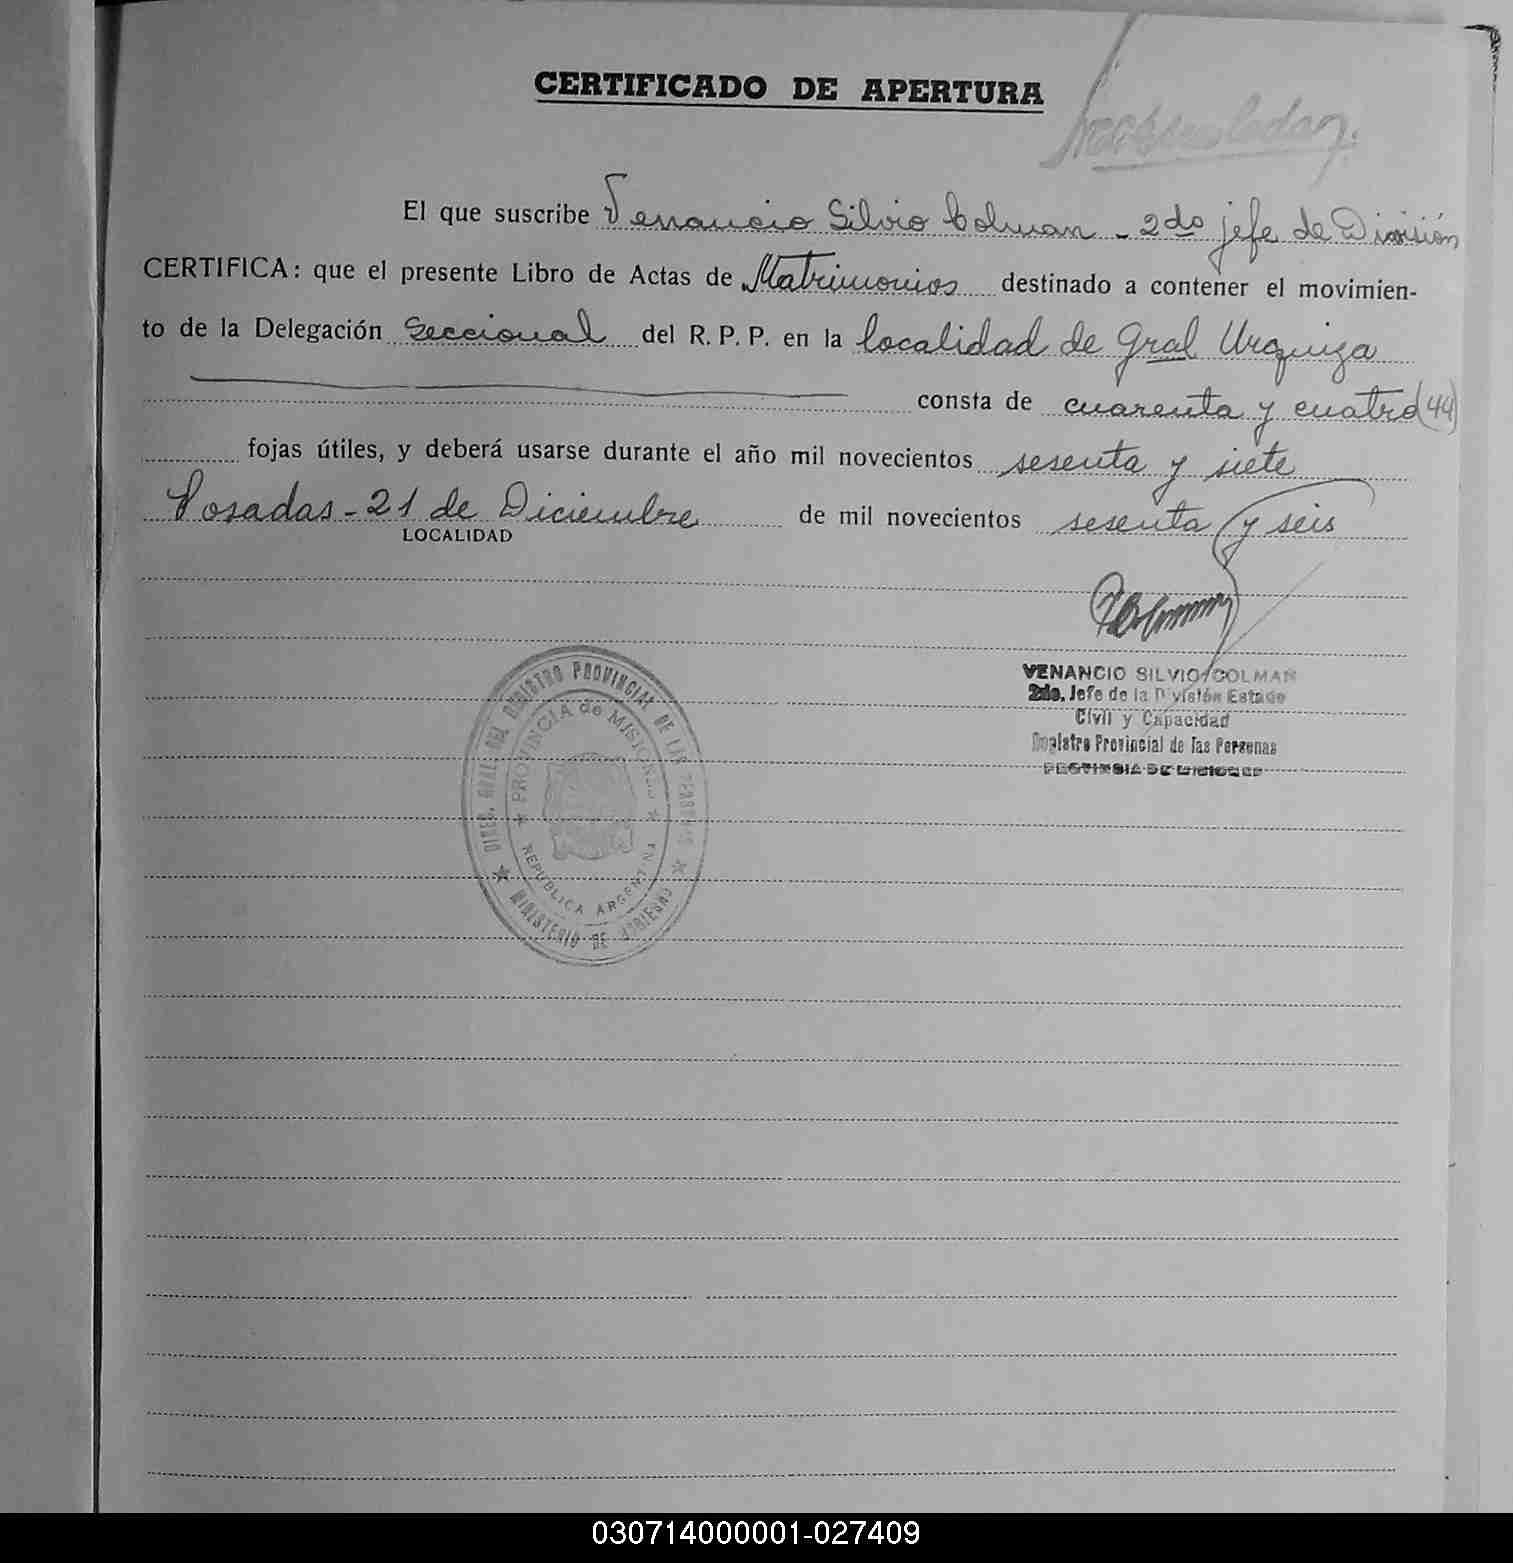 CERTIFICADO DE APERTURA
El que suscribe Venancio Silvio Colman - 2do jefe de División
CERTIFICA: que el presente Libro de Actas de Matrimonios destinado a contener el movimien-
to de la Delegación Seccional del R. P. P. en la localidad de Gral Urquiza
consta de cuarenta y cuatro (44)
fojas útiles, y deberá usarse durante el año mil novecientos sesenta y siete
Posadas - 21 de Diciembre de mil novecientos sesenta y seis
LOCALIDAD
VENANCIO SILVIO COLMAN
2do. Jefe de la División Estado
Civil y Capacidad
Registro Provincial de las Personas
PROVINCIA DE MISIONES
DIREC. GRAL. DEL REGISTRO PROVINCIAL DE LAS PERSONAS
PROVINCIA de MISIONES
REPUBLICA ARGENTINA
MINISTERIO DE GOBIERNO
030714000001-027409